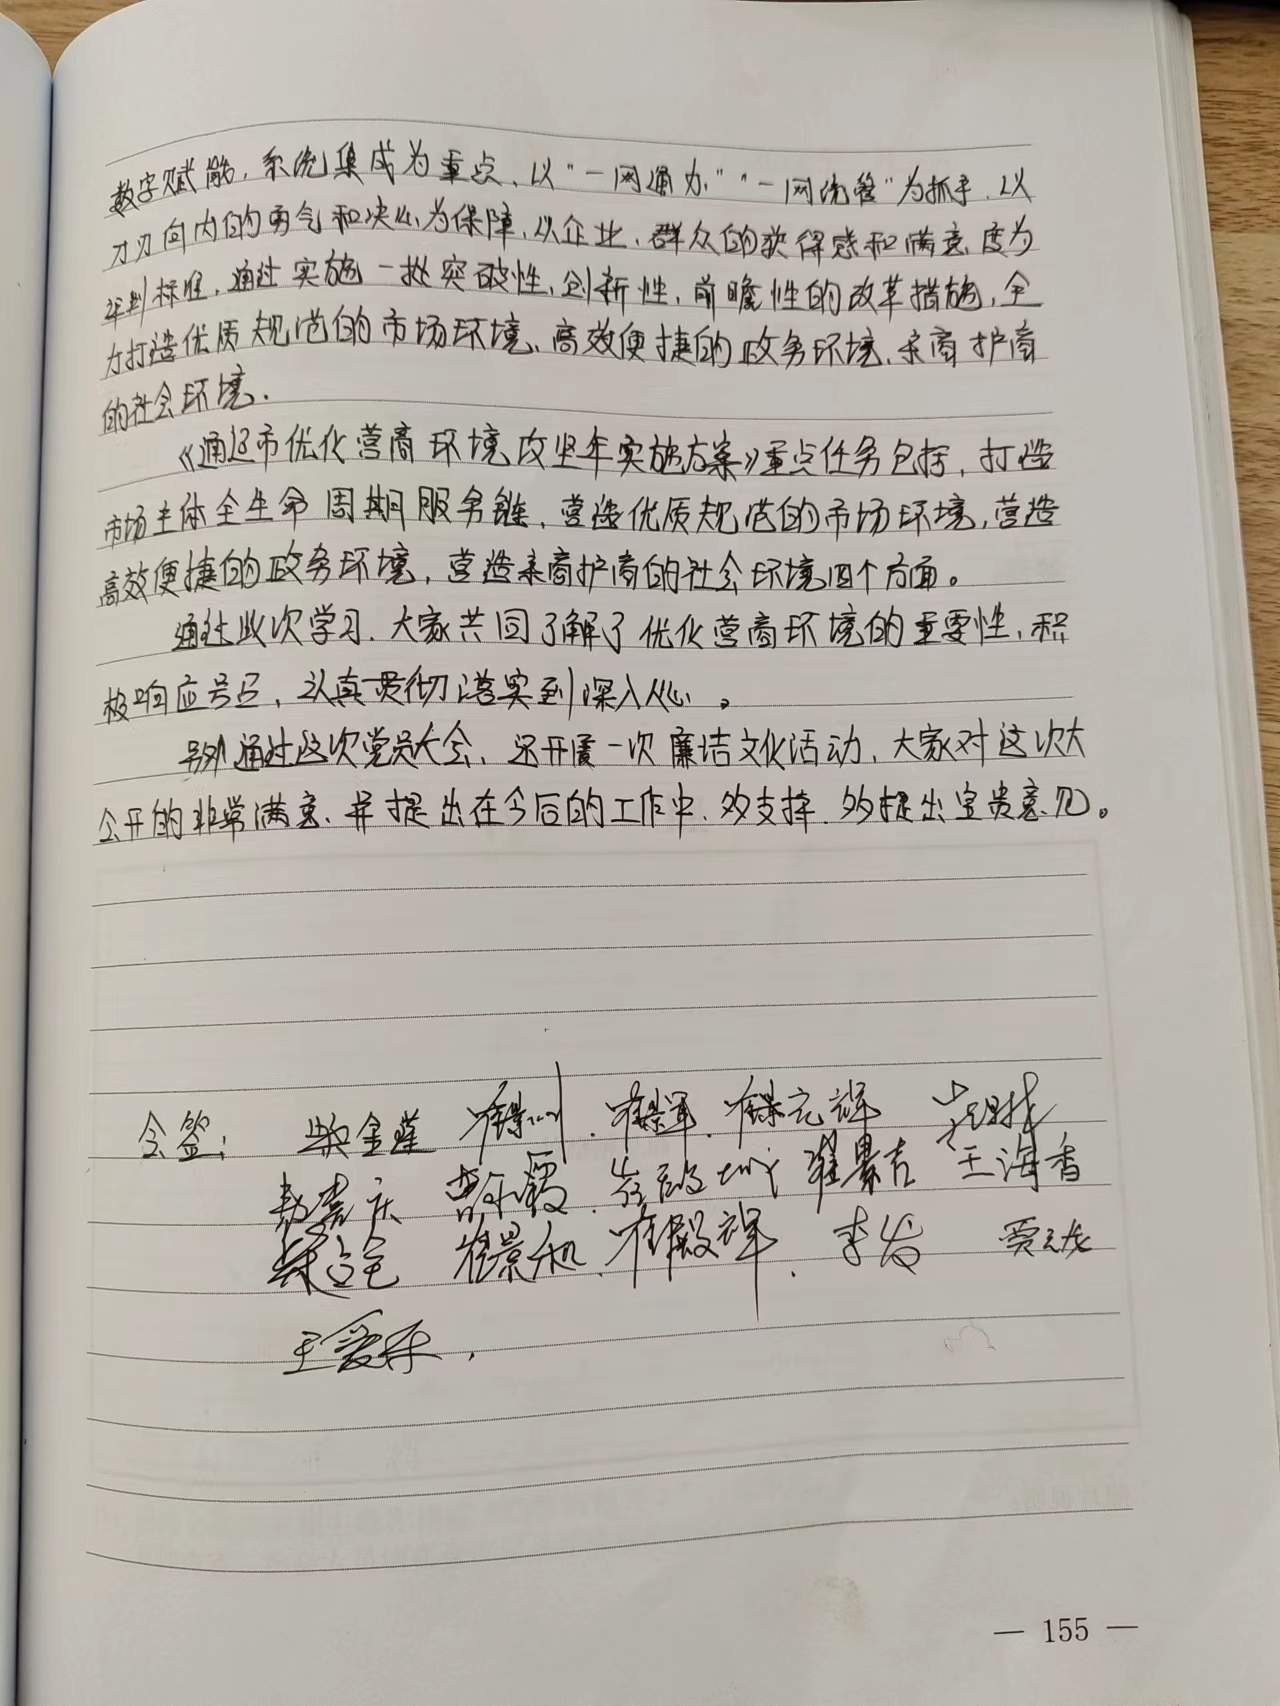 数字赋能，系统集成为重点，以“一网通办”“一网统管”为抓手，以
刀刃向内的勇气和决心为保障，以企业、群众的获得感和满意度为
评判标准，通过实施一批突破性，创新性，前瞻性的改革措施，全
力打造优质规范的市场环境、高效便捷的政务环境、亲商护商
的社会环境．
《通辽市优化营商环境攻坚年实施方案》重点任务包括，打造
市场主体全生命周期服务链、营造优质规范的市场环境，营造
高效便捷的政务环境，营造亲商护商的社会环境四个方面。
通过此次学习．大家共同了解了优化营商环境的重要性，积
极响应号召，认真贯彻落实到深入人心。
另外通过这次党员大会，还开展一次廉洁文化活动，大家对这次大
公开的非常满意．并提出在今后的工作中．多支持．多提出宝贵意见。
会签：金莲
王海香
崔景和．李
— 155 —